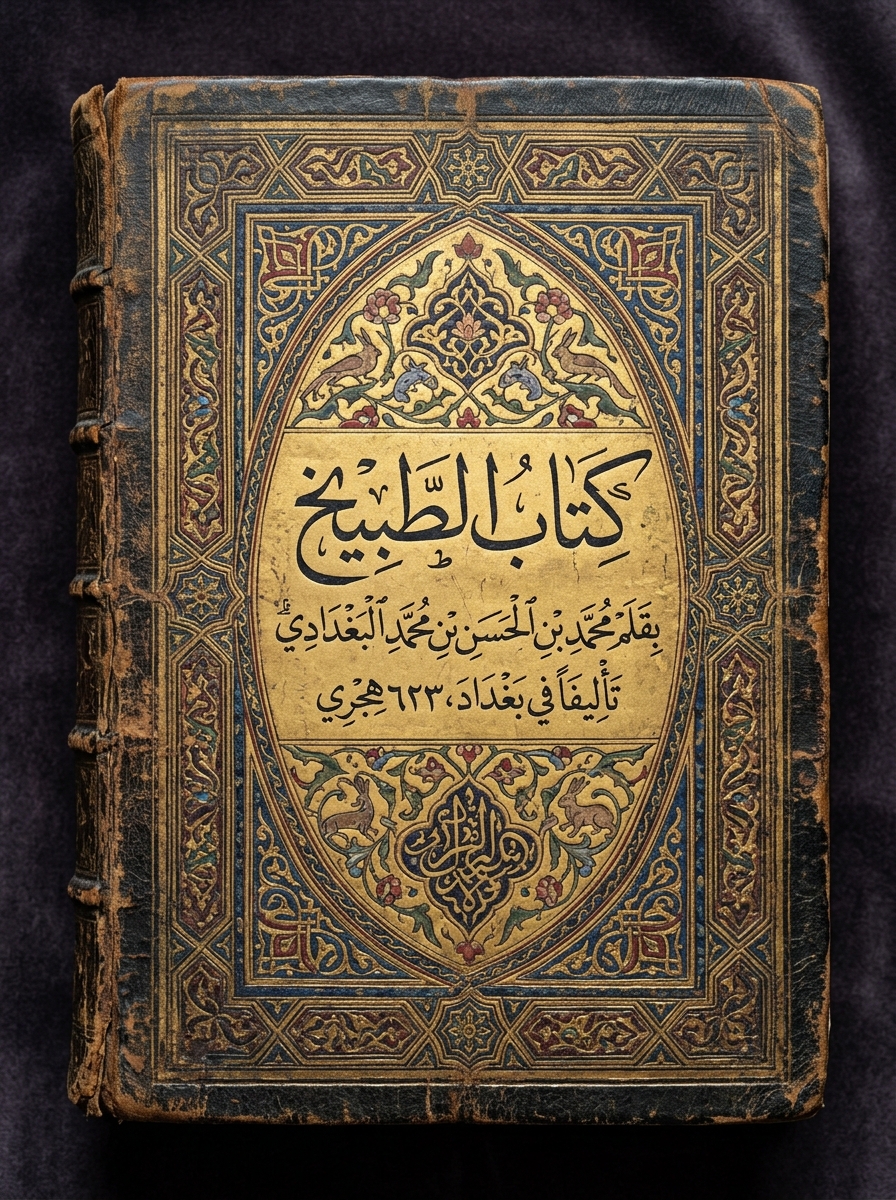 كِتَابُ الطَّبِيخ
بِقَلَمْ مُحَمَّدِ بْنِ الْحَسَنِ بْنِ مُحَمَّدِ الْبَغْدَادِيِّ
تَأْلِيفَاً فِي بَغْدَادَ، ٦٢٣ هِجْرِي